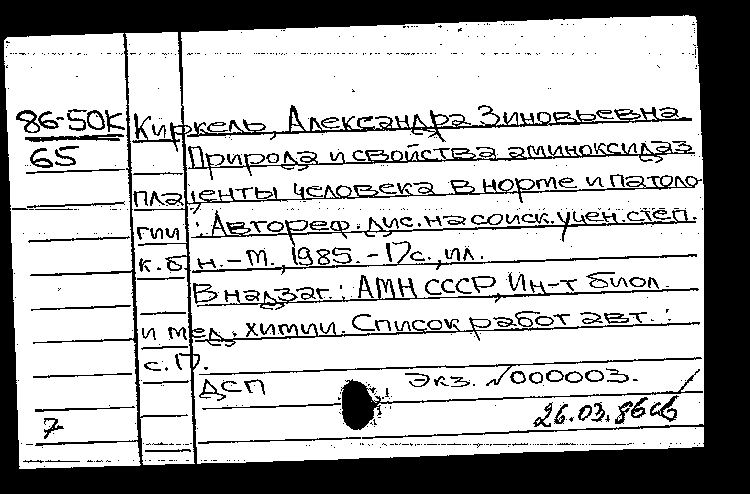 86-50К Киркель, Александра Зиновьевна.
65 Природа и свойства аминоксидаз
плаценты человека в норме и патоло-
гии : Автореф. дис. на соиск. учен. степ.
к. б. н. - М., 1985. - 17с., ил.
В надзаг.: АМН СССР, Ин-т биол.
и мед. химии. Список работ авт.:
с. 17.
ДСП Экз. №000003.
7 26.03.86